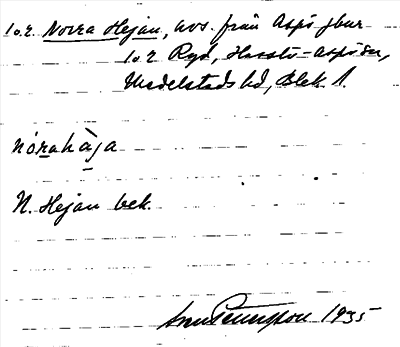 1o.2 Norra Hejan, avs. från Aspö jbur
1o 2 Ryd, Hasslö-aspöarn,
Medelstads hd, Blek. l.
nórahàja
N. Hejan bek.
1935